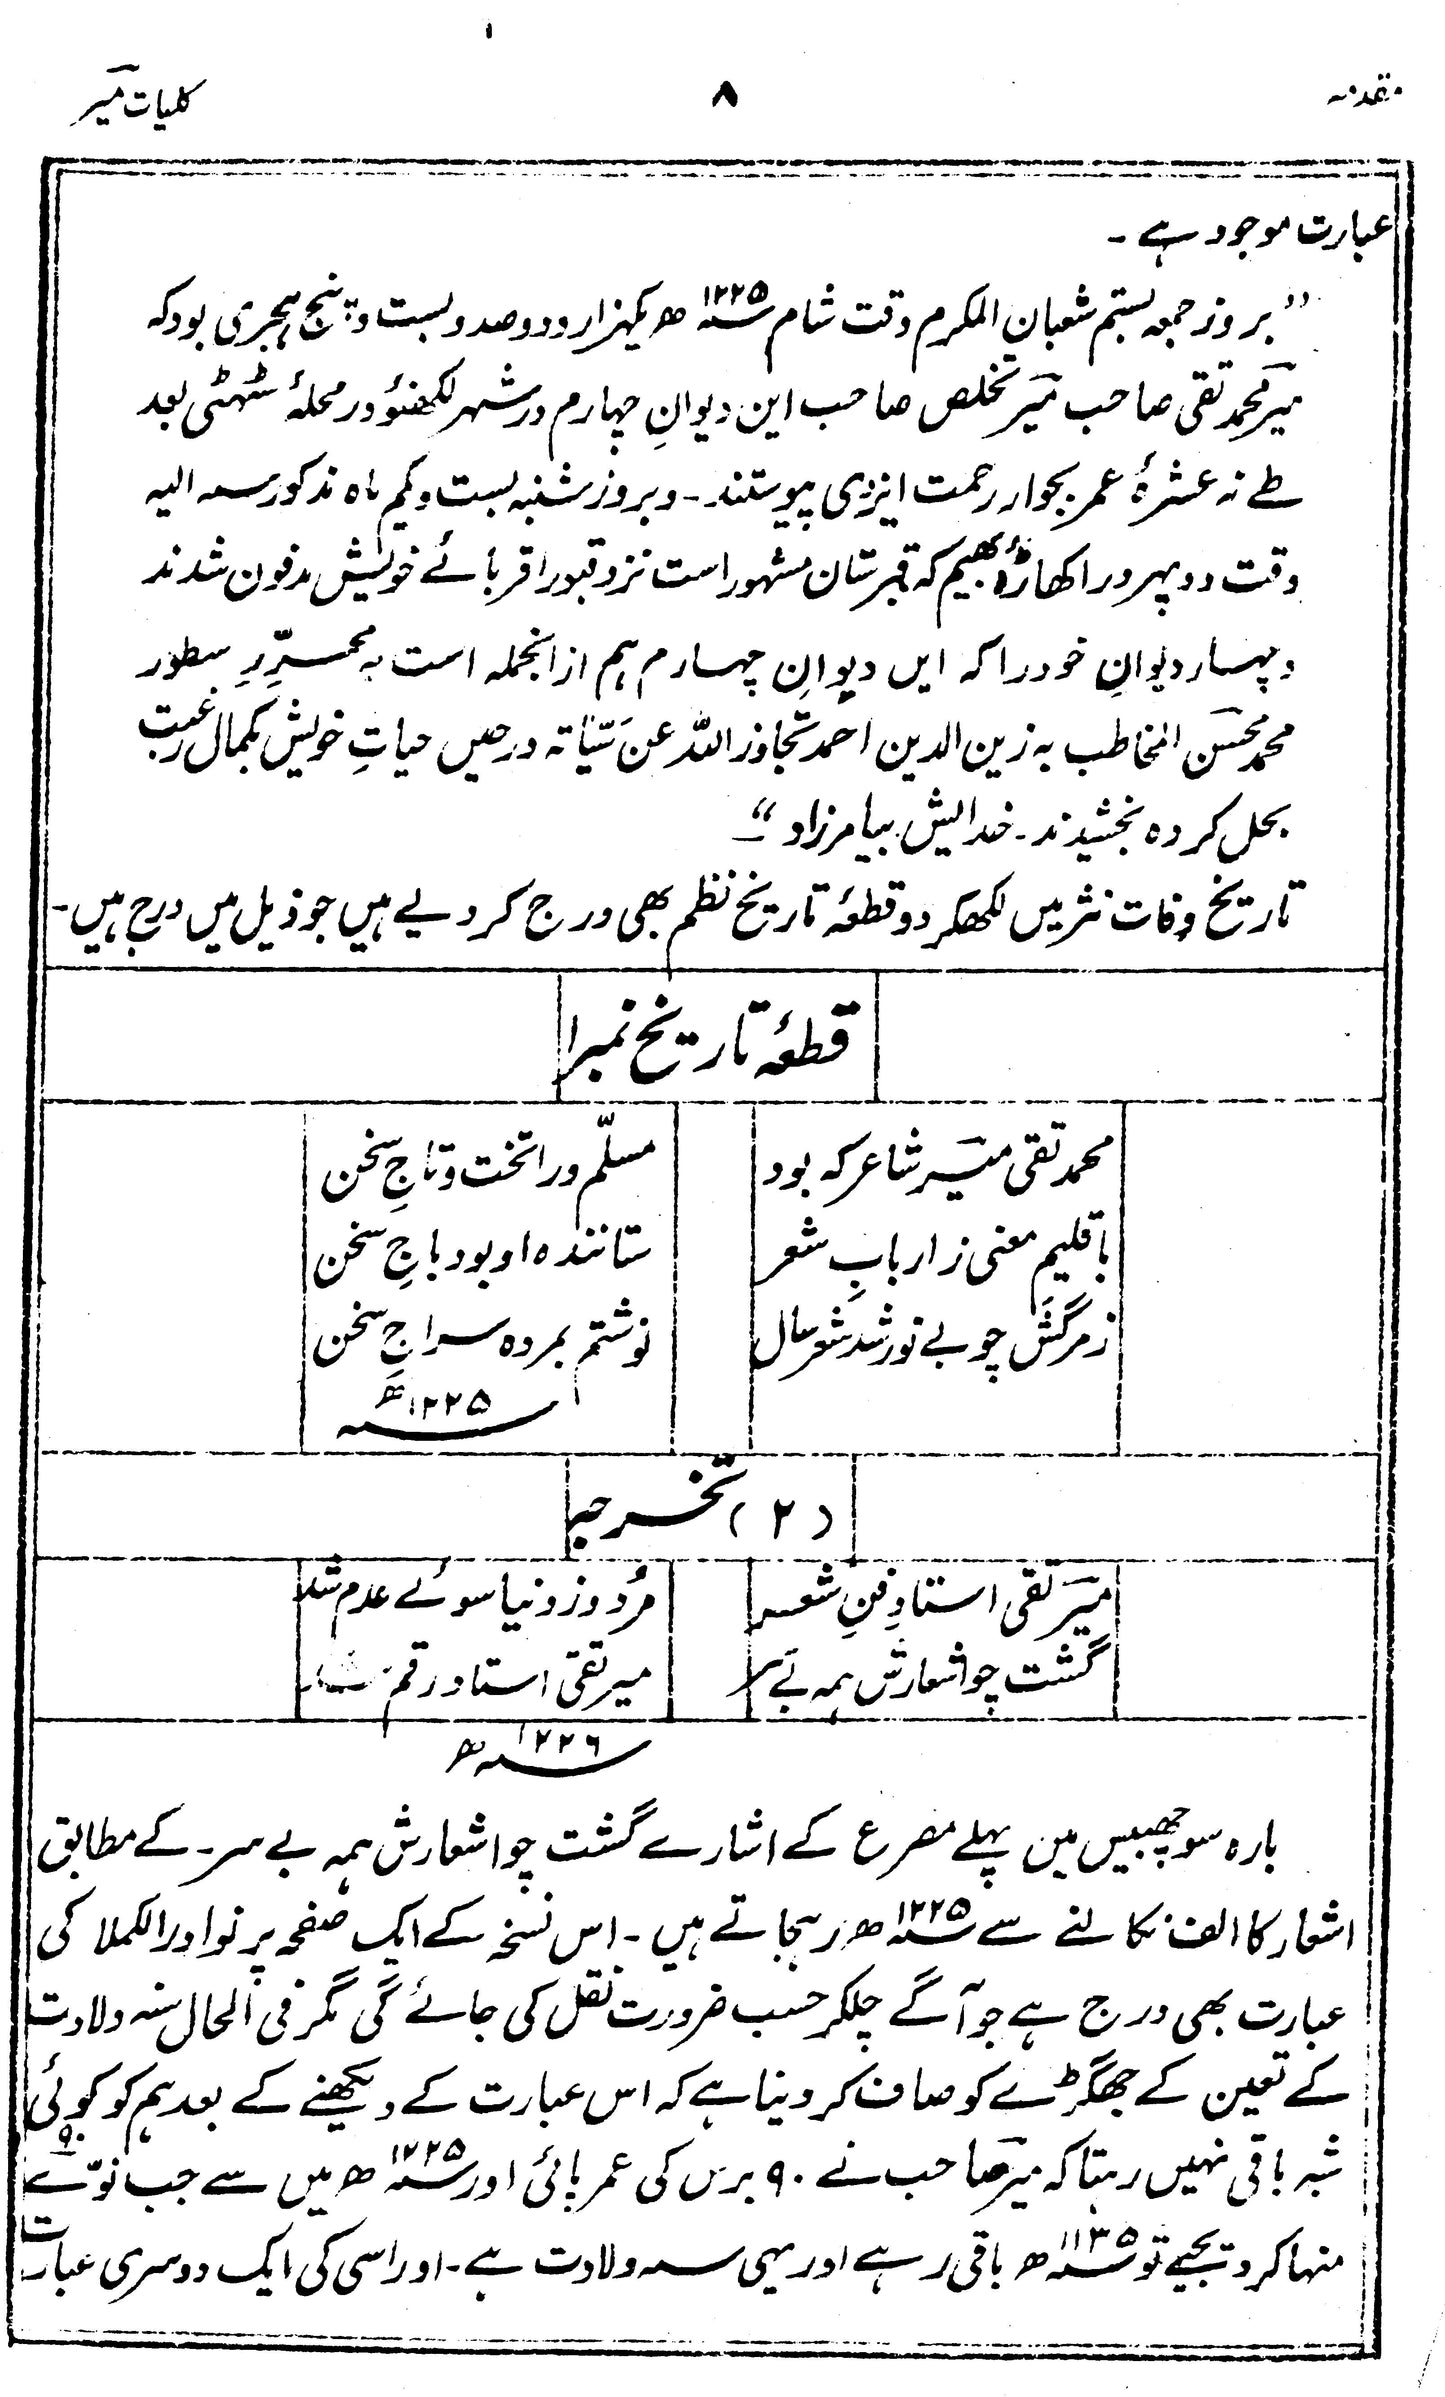 مقدمہ
۸
کلیات میر
عبارت موجود ہے۔
”بروز جمعہ بستم شعبان المکرم وقت شام ۱۲۲۵ھ یکہزار و دو صد و بست و پنج ہجری بود کہ
میر محمد تقی صاحب میر تخلص صاحب این دیوانِ چہارم در شہر لکھنؤ در محلۂ سٹہٹی بعد
طے نہ عشرۂ عمر بجوار رحمت ایزدی پیوستند۔ و بروز شنبہ بست و یکم ماہ مذکور سنہ الیہ
وقت دوپہر در اکھاڑۂ بھیم کہ قبرستان مشہور است نزد قبور اقربائے خویش مدفون شدند
و چہار دیوانِ خود را کہ ایں دیوانِ چہارم ہم ازانجملہ است بہ محرّرِ سطور
محمد محسن المخاطب بہ زین الدین احمد تجاوز اللہ عن سیّاتہ در حین حیاتِ خویش بکمال رغبت
بحل کردہ بخشیدند۔ خدایش بیامرزاد“
تاریخ وفات نثر میں لکھکر دو قطعۂ تاریخ نظم بھی درج کر دیے ہیں جو ذیل میں درج ہیں۔
قطعۂ تاریخ نمبر ۱
محمد تقی میر شاعر کہ بود مسلّم ورا تخت و تاجِ سخن
باقلیم معنی ز اربابِ شعر ستانندہ او بود باجِ سخن
ز مرگش چو بے نور شد شعر سال نوشتم بمردہ سراجِ سخن
۱۲۲۵ھ
(۲) تخرجہ
میر تقی استادِ فنِ شعر مُرد و ز دنیا سوئے عدم شد
گشت چو اشعارش ہمہ بے سر میر تقی استاد رقم شد
۱۲۲۶ھ
بارہ سو چھبیس میں پہلے مصرع کے اشارے گشت چو اشعارش ہمہ بے سر۔ کے مطابق
اشعار کا الف نکالنے سے ۱۲۲۵ھ رہجاتے ہیں۔ اس نسخہ کے ایک صفحہ پر نوادر الکملا کی
عبارت بھی درج ہے جو آگے چلکر حسب ضرورت نقل کی جائے گی مگر فی الحال سنہ ولادت
کے تعین کے جھگڑے کو صاف کر دینا ہے کہ اس عبارت کے دیکھنے کے بعد ہم کو کوئی
شبہ باقی نہیں رہتا کہ میر صاحب نے ۹۰ برس کی عمر پائی اور ۱۲۲۵ھ میں سے جب نوّے ۹۰
منہا کر دیجیے تو ۱۱۳۵ھ باقی رہے اور یہی سنہ ولادت ہے۔ اور اسی کی ایک دوسری عبارت